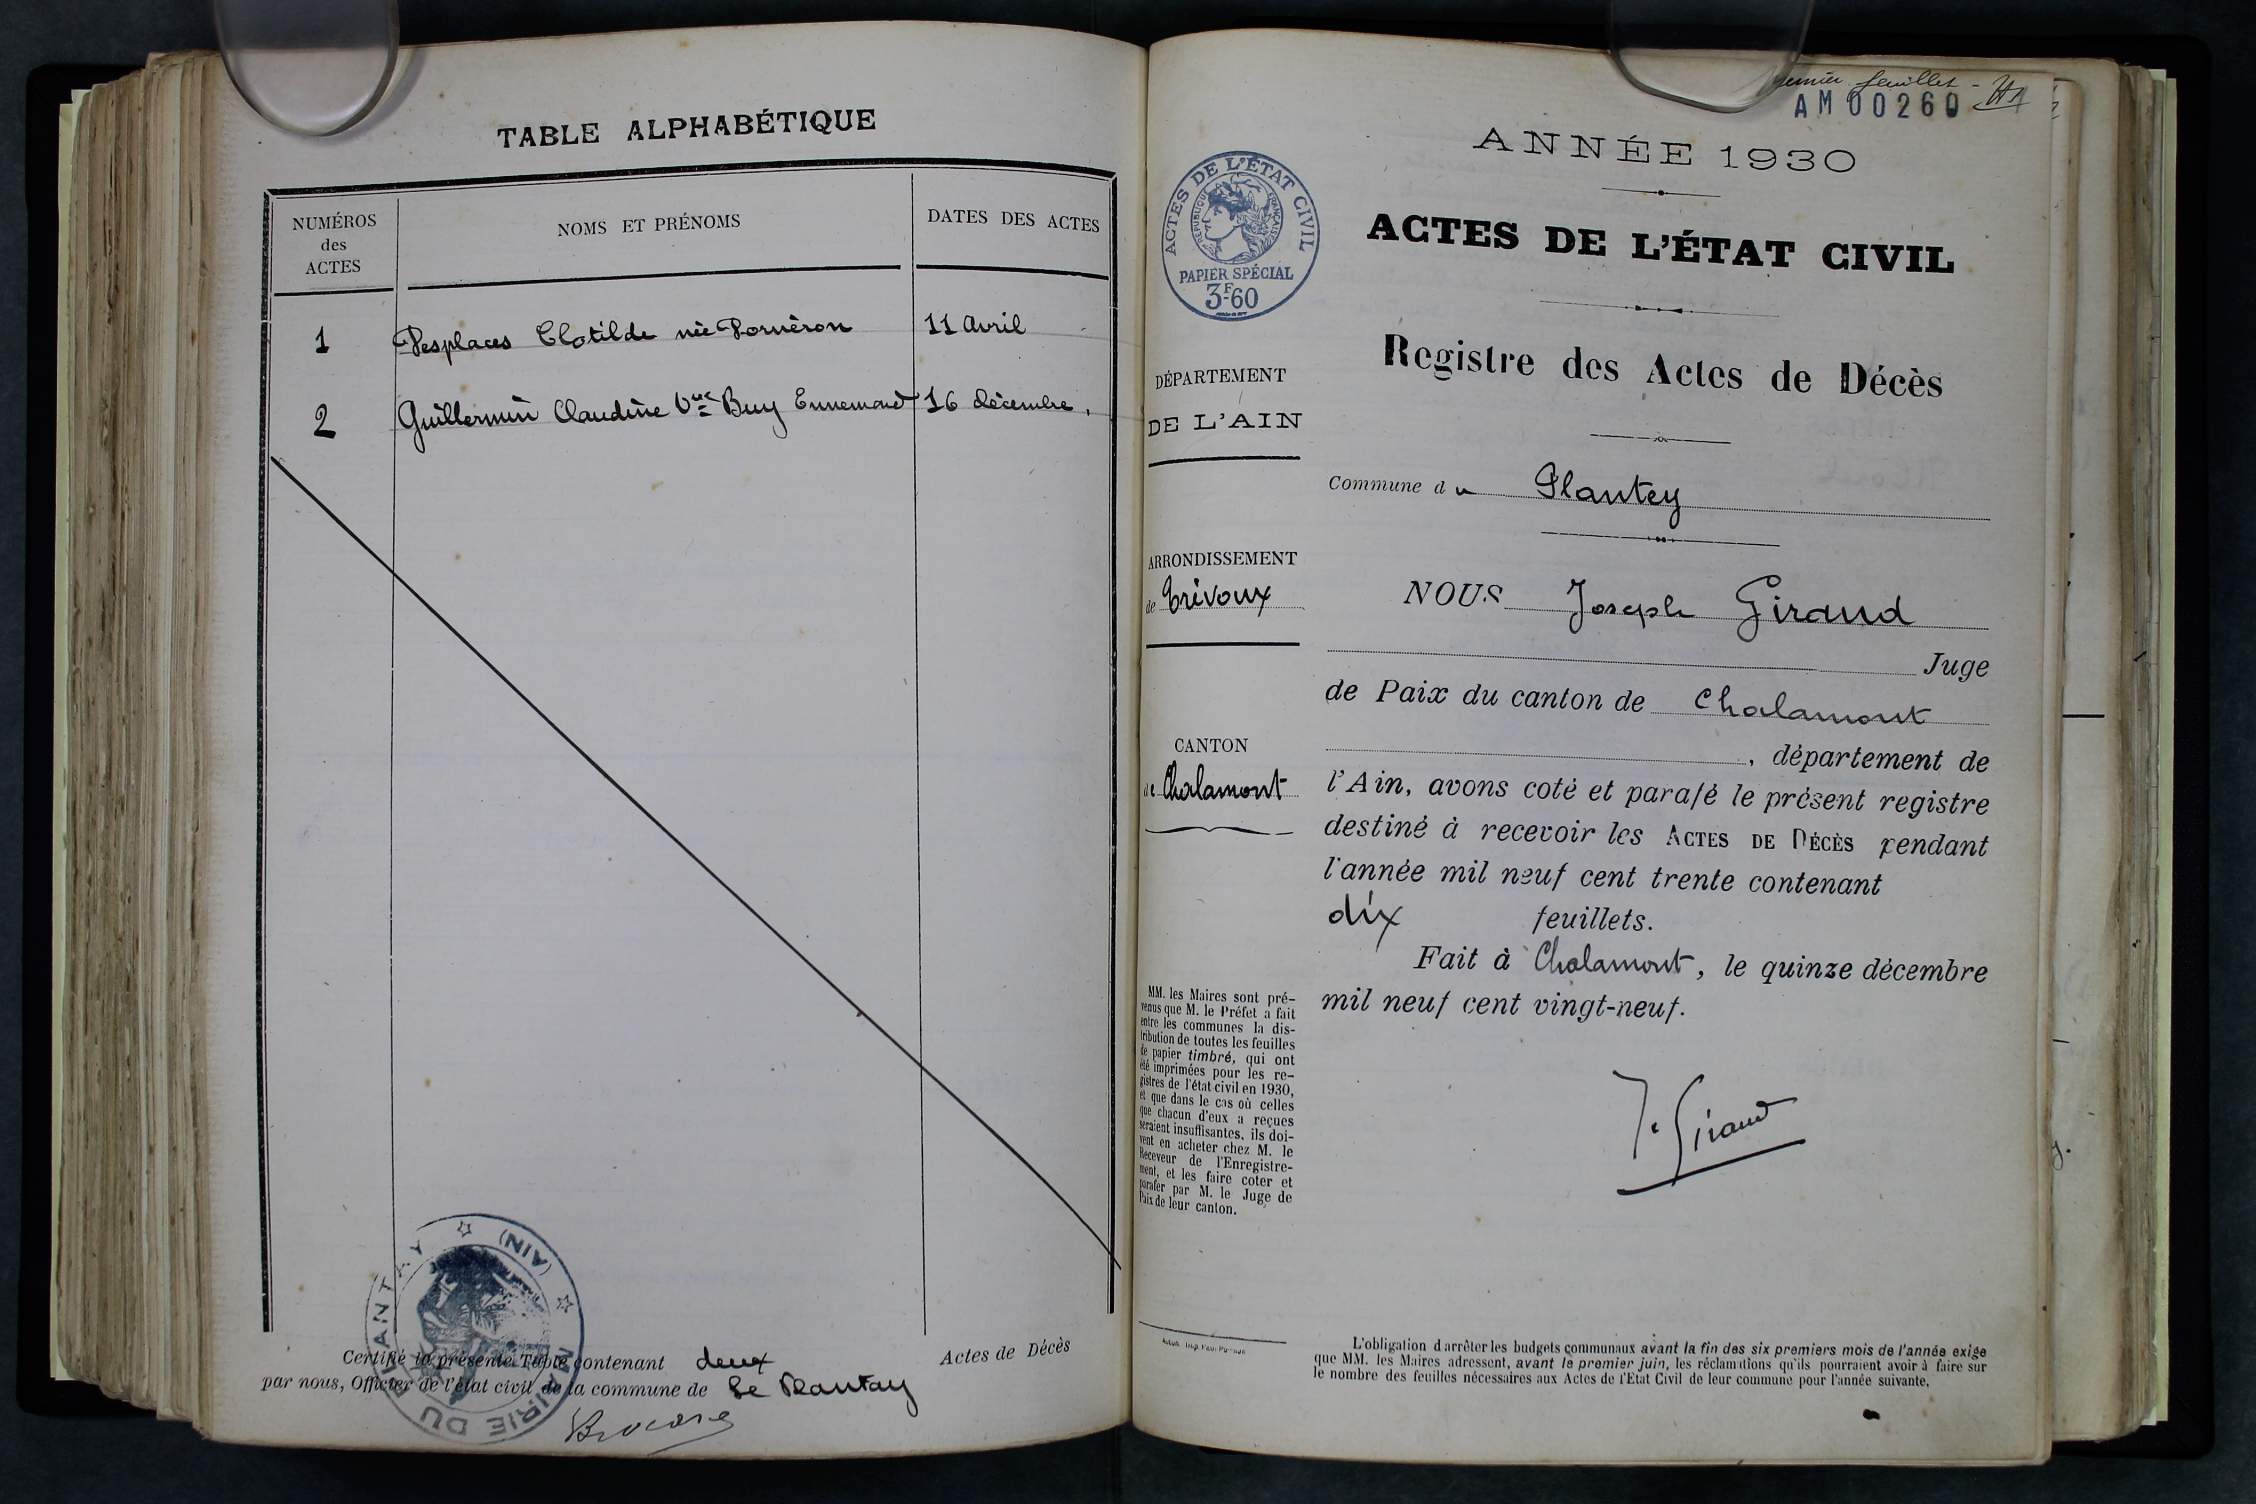 TABLE ALPHABÉTIQUE
NUMÉROS
des
ACTES
NOMS ET PRÉNOMS
DATES DES ACTES
1 Desplaces Clotilde née Pornéron 11 Avril
2 Guillermin Claudine Vve Buy Ennemond 16 décembre
Certifié la présente Table contenant deux Actes de Décès
par nous, Officier de l'état civil de la commune de Le Plantay
MAIRIE DU PLANTAY
(AIN)
premier feuillet
AM00260
ANNÉE 1930
ACTES DE L'ÉTAT CIVIL
RÉPUBLIQUE FRANÇAISE
PAPIER SPÉCIAL
3F60
ACTES DE L'ÉTAT CIVIL
Registre des Actes de Décès
DÉPARTEMENT
DE L'AIN
Commune du Plantey
ARRONDISSEMENT
de Trévoux
CANTON
de Chalamont
NOUS Joseph Giraud
Juge
de Paix du canton de Chalamont
, département de
l'Ain, avons coté et parafé le présent registre
destiné à recevoir les ACTES DE DÉCÈS pendant
l'année mil neuf cent trente contenant
dix feuillets.
Fait à Chalamont, le quinze décembre
mil neuf cent vingt-neuf.
J. Giraud
MM. les Maires sont pré-
venus que M. le Préfet a fait
entre les communes la dis-
tribution de toutes les feuilles
de papier timbré, qui ont
été imprimées pour les re-
gistres de l'état civil en 1930,
et que dans le cas où celles
que chacun d'eux a reçues
seraient insuffisantes, ils doi-
vent en acheter chez M. le
Receveur de l'Enregistre-
ment, et les faire coter et
parafer par M. le Juge de
Paix de leur canton.
L'obligation d'arrêter les budgets communaux avant la fin des six premiers mois de l'année exige
que MM. les Maires adressent, avant le premier juin, les réclamations qu'ils pourraient avoir à faire sur
le nombre des feuilles nécessaires aux Actes de l'Etat Civil de leur commune pour l'année suivante.